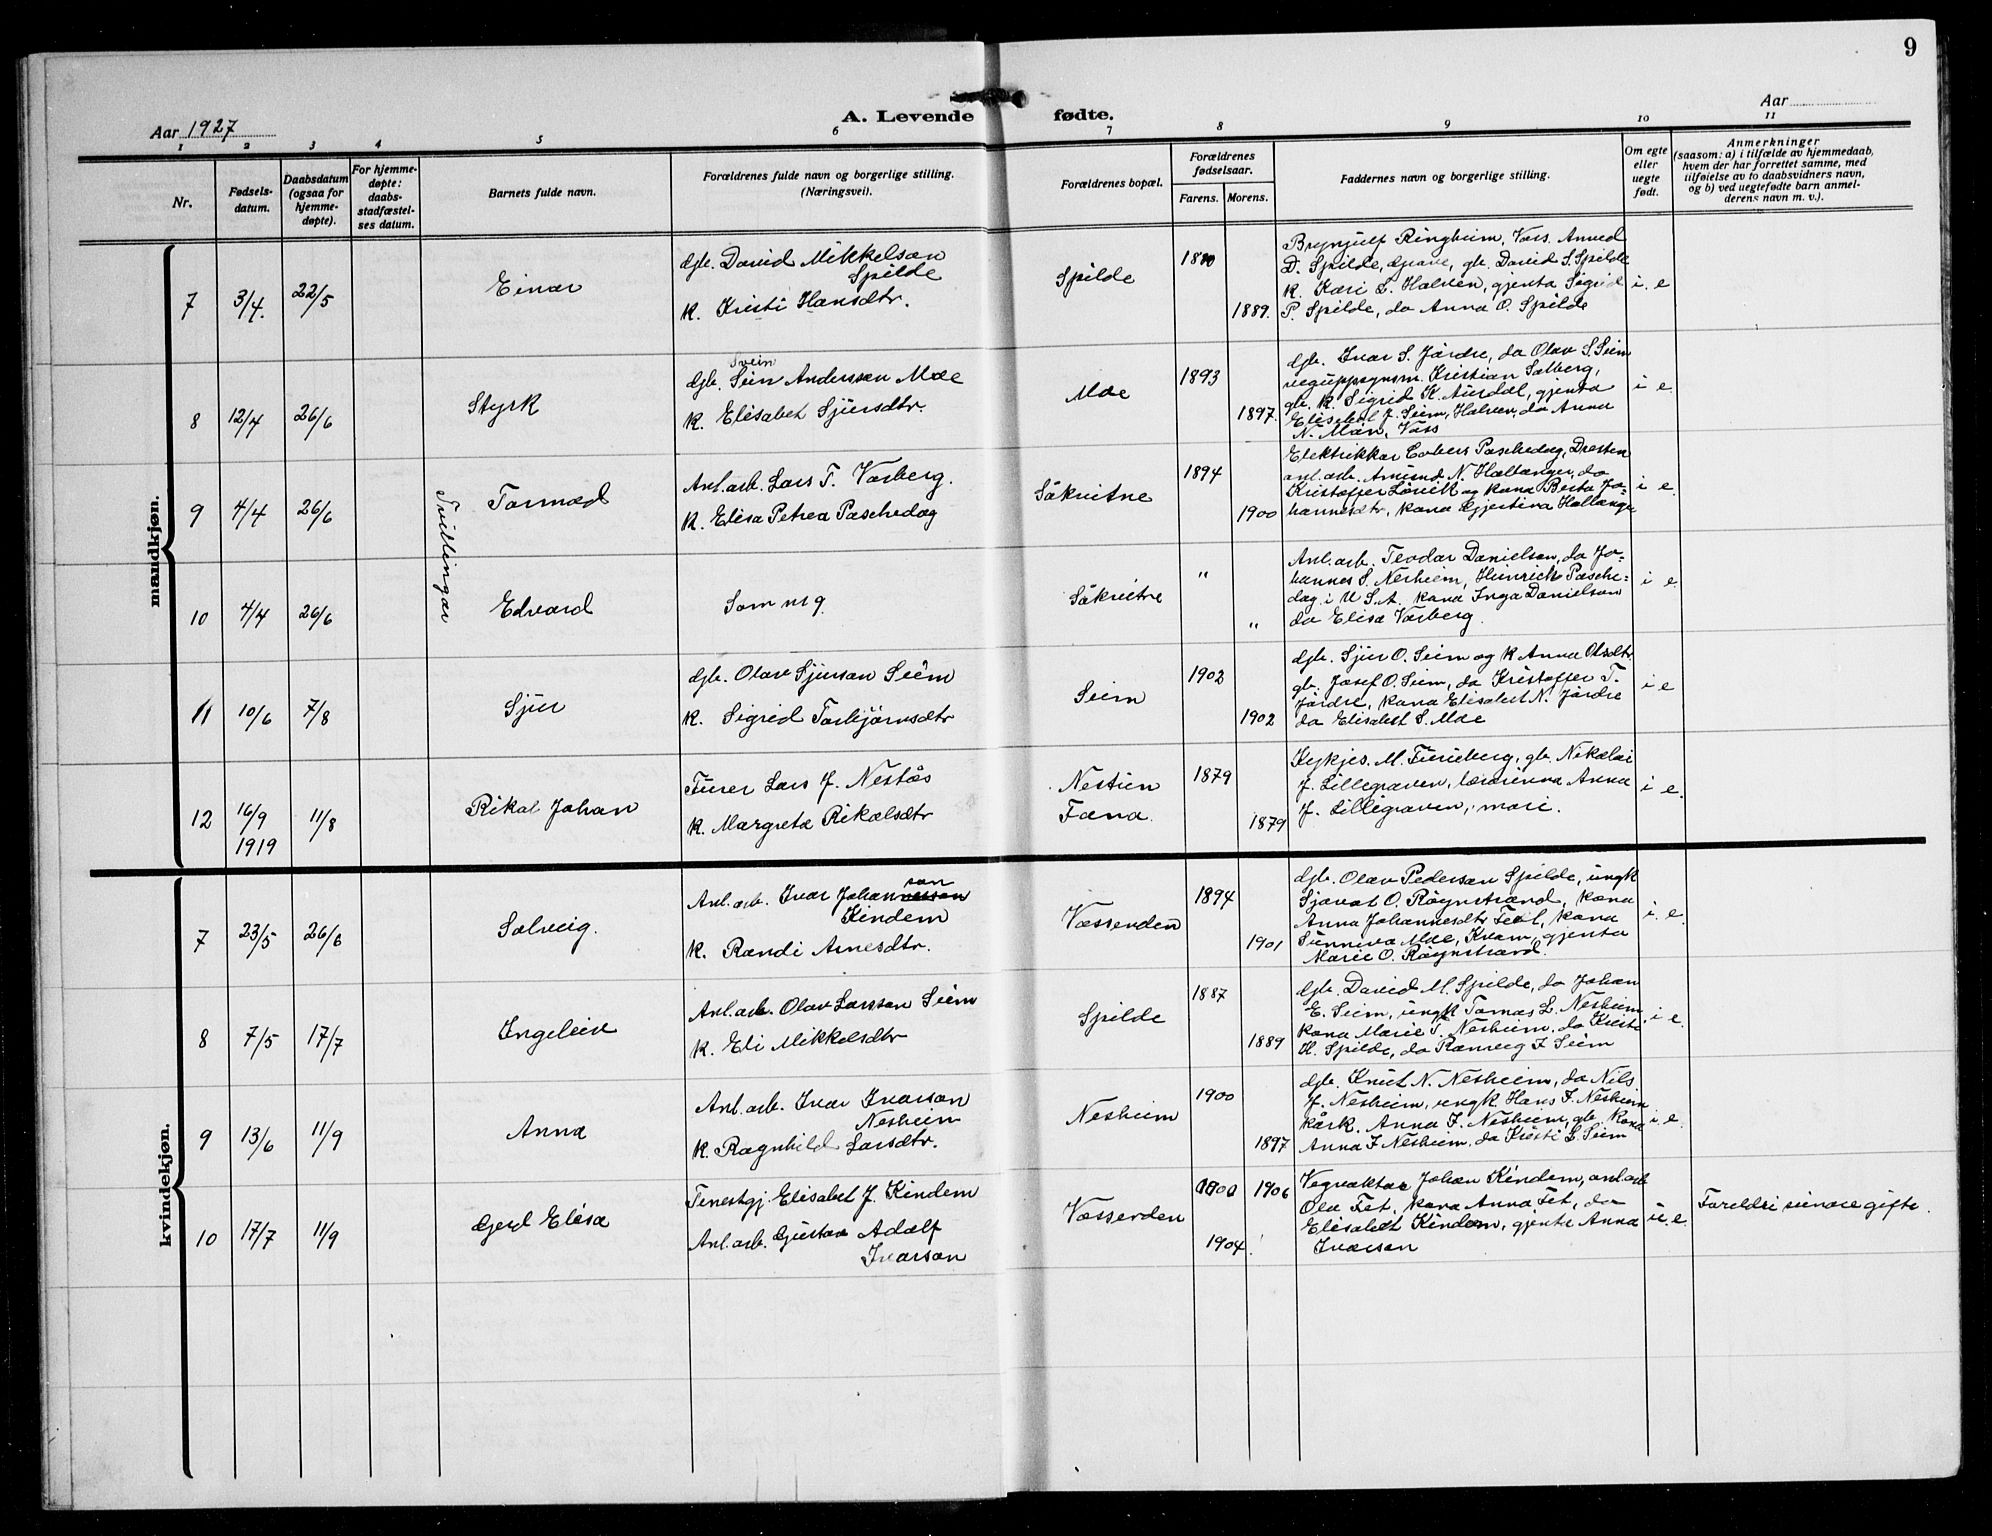 9
Aar 1927
A. Levende fødte.
Aar
1 2 3 4 5 6 7 8 9 10 11
Nr.
Fødsels-
datum.
Daabsdatum
(ogsaa for
hjemme-
døpte).
For hjemme-
døpte:
daabs-
stadfæstel-
ses datum.
Barnets fulde navn.
Forældrenes fulde navn og borgerlige stilling.
(Næringsvei).
Forældrenes bopæl.
Forældrenes
fødselsaar.
Farens. Morens.
Faddernes navn og borgerlige stilling.
Om egte
eller
uegte
født.
Anmerkninger
(saasom: a) i tilfælde av hjemmedaab,
hvem der har forrettet samme, med
tilføielse av to daabsvidners navn,
og b) ved uegtefødte barn anmel-
derens navn m. v.).
mandkjøn.
7 3/4. 22/5 Einar
gb. David Mikkelson
Spilde
k. Kristi Hansdtr.
Spilde
1880
1889.
Brynjulf Ringheim, Voss. Anved
D. Spilde, Grave, gb. David S. Spilde
k. Kari L. Halven, gjenta Sigrid
P. Spilde, do Anna O. Spilde
i. e
8 12/4 26/6 Styrk
Svein
gb. Sein Anderssen Moe
k. Elisabet Sjursdtr.
Moe
1893
1897.
gb. Ivar S. Jårdre, do Olav S. Seim
veguppsynsm. Kristian Solberg,
gb. k. Sigrid K. Aurdal, gjenta
Elisabet J. Seim, Halven, do Anna
N. Møn, Voss
i e
Tvillingar
9 4/4 26/6 Tormod
Anl. arb. Lars T. Varberg.
k. Elisa Petrea Paschedag
Såkvitne
1894
1900
Elektrikkar Cobers Paschedag, Dresten
anl. arb. Amund N. Haltanger, do
Kristoffer Lövik og kona Berta Jo-
hannesdtr, kona Gjertina Hallanger
i e.
10 4/4 26/6 Edvard
Som nr 9.
Såkvitne
"
"
Anl. arb. Teodor Danielson, do Jo-
hannes S. Nesheim, Heinrich Pasche-
dag i U. S. A. kona Inga Danielson
do Elisa Varberg.
i e
11 10/6 7/8 Sjur
gb. Olav Sjurson Seim
k. Sigrid Torbjörnsdtr
Seim
1902
1902
gb. Sjur O. Seim og k Anna Olsdtr.
gb. Josef O. Seim, do Kristoffer T.
Jårdre, kona Elisabet N. Jårdre
do Elisabet S. Moe
i e
12 16/9
1919
11/8 Rikal Johan
Furer Lars J. Nestås
k. Margreta Rikalsdtr
Nestun
Fana.
1879
1879
Kyrkjes. M. Furuberg, gb. Nikolai
J. Lillegraven, lærarinna Anna
J. Lillegraven, mori.
i e.
kvindekjøn.
7 23/5 26/6 Solveig.
Anl. arb. Ivar Johannesson
son
Kindem
k. Randi Arnesdtr.
Vassenden
1894
1901
gb. Olav Pederson Spilde, ungk
Sjovat O. Röynstrand, kona
Anna Johannesdtr Fet, kona
Sunniva Moe, Kvam, gjenta
Marie O. Röynstrand.
i. e.
8 7/5 17/7 Ingeleiv
Anl. arb. Olav Larsson Seim
k. Eli Mikkelsdtr
Spilde
1887
1889
gb. David M. Spilde, do Johan
E. Seim, ungk Tomas L. Nesheim
kona Marie T. Nesheim, do Kristi
H. Spilde, do Ranveig I Seim
i e.
9 13/6 11/9 Anna
Anl. arb. Ivar Ivarson
Nesheim
k. Ragnhild Larsdtr.
Nesheim
1900
1897
gb. Knut N. Nesheim, do Nils
J. Nesheim, ungk Hans I. Nesheim
kårk. Anna I. Nesheim, gb. kona
Anna I Nesheim, do Kristi L. Seim
i. e.
10 17/7 11/9 Gerd Elisa
Tenestgj. Elisabet J. Kindem
Anl. arb. Gustav Adolf
Ivarson
Vassenden
1906
1904
Vegvaktar Johan Kindem, anl. arb
Ola Fet, kona Anna Fet, do
Elisabet Kindem, gjenta Anna
Ivarson
u. e.
Foreldri seinare gifte.